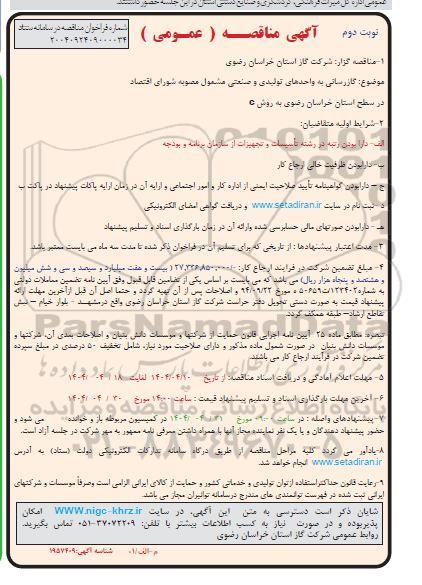 عمومی اداره کل میراث فرهنگی، گردشگری و صنایع دستی استان در این جلسه حضور داشتند.
شماره فراخوان مناقصه در سامانه ستاد
۲۰۰۴۰۹۲۴۰۹۰۰۰۰۳۴
آگهی مناقصـــه ( عمــومی )
نوبت دوم
۱-مناقصه گزار: شرکت گاز استان خراسان رضوی
موضوع: گازرسانی به واحدهای تولیدی و صنعتی مشمول مصوبه شورای اقتصاد
در سطح استان خراسان رضوی به روش c
۲-شرایط اولیه متقاضیان:
الف- دارا بودن رتبه در رشته تأسیسات و تجهیزات از سازمان برنامه و بودجه
ب- دارابودن ظرفیت خالی ارجاع کار
ج – دارابودن گواهینامه تأیید صلاحیت ایمنی از اداره کار و امور اجتماعی و ارایه آن در زمان ارایه پاکات پیشنهاد در پاکت ب
د- ثبت نام در سایت www.setadiran.ir و دریافت گواهی امضای الکترونیکی
هـ - دارابودن صورتهای مالی حسابرسی شده وارائه آن در زمان بارگذاری اسناد و تسلیم پیشنهاد
۳- مدت اعتبار پیشنهادها : از تاریخی که برای تسلیم آن در فراخوان ذکر شده تا مدت سه ماه می بایست معتبر باشد
۴- مبلغ تضمین شرکت در فرایند ارجاع کار: ۲۷,۳۳۶,۸۵۰,۰۰۰/۰ ( بیست و هفت میلیارد و سیصد و سی و شش میلیون
و هشتصد و پنجاه هزار ریال) می باشد که می بایست بر اساس یکی از تضامین قابل قبول وفق آیین نامه تضمین معاملات دولتی
به شماره۱۲۳۴۰۲/ت۵۰۶۵۹ ه مورخ ۹۴/۰۹/۲۲ و اصلاحات پس از آن تهیه گردد و حتما اصل آن قبل ازآخرین مهلت ارائه
پیشنهاد قیمت به صورت دستی تحویل دفتر حراست شرکت گاز استان خراسان رضوی واقع درمشهد – بلوار خیام – نبش
تقاطع ارشاد– طبقه همکف گردد.
تبصره: مطابق ماده ۲۵ آیین نامه اجرایی قانون حمایت از شرکتها و موسسات دانش بنیان و اصلاحات بعدی آن، شرکتها و
موسسات دانش بنیان در صورت شمول ماده مذکور و دارای صلاحیت مورد نیاز، شامل تخفیف ۵۰ درصدی در مبلغ سپرده
تضمین شرکت در فرآیند ارجاع کار می باشند.
۵- مهلت اعلام آمادگی و دریافت اسناد مناقصه: از تاریخ ۱۴۰۴/۰۴/۱۰ لغایت ۱۸ / ۰۴ / ۱۴۰۴
۶- آخرین مهلت بارگذاری اسناد و تسلیم پیشنهاد قیمت : ساعت ۱۴:۰۰ مورخ ۳۰ / ۰۴ / ۱۴۰۴
۷-پیشنهادهای واصله : در ساعت ۰۹:۰۰ مورخ ۳۱ / ۰۴ / ۱۴۰۴ در کمیسیون مربوطه باز و خوانده می شود و
حضور پیشنهاد دهندگان و یا یک نفر نماینده مجاز آنها با همراه داشتن معرفی نامه ممهور به مهر شرکت در جلسه آزاد است.
۸-یادآور می گردد کلیه مراحل مناقصه از طریق درگاه سامانه تدارکات الکترونیکی دولت (ستاد) به آدرس
www.setadiran.ir انجام خواهد شد.
۹-رعایت قانون حداکثراستفاده ازتوان تولیدی و خدماتی کشور و حمایت از کالای ایرانی الزامی است وصرفاً موسسات و شرکتهای
ایرانی ثبت شده در فهرست توانمندی های مندرج درسامانه توانیران مجاز می باشد.
شایان ذکر است دسترسی به متن این آگهی، در سایت WWW.nigc-khrz.ir امکان
پذیربوده و در صورت نیاز به کسب اطلاعات بیشتر با تلفن: ۳۷۰۷۲۲۰۹-۰۵۱ تماس بگیرید.
روابط عمومی شرکت گاز استان خراسان رضوی
م-الف/۰۱ شناسه آگهی: ۱۹۵۷۴۰۹